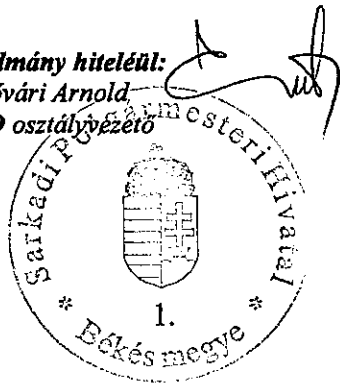 mány hiteléül:
vári Arnold
osztályvezető
Sarkadi Polgármesteri Hivatal
1.
* Békés megye *